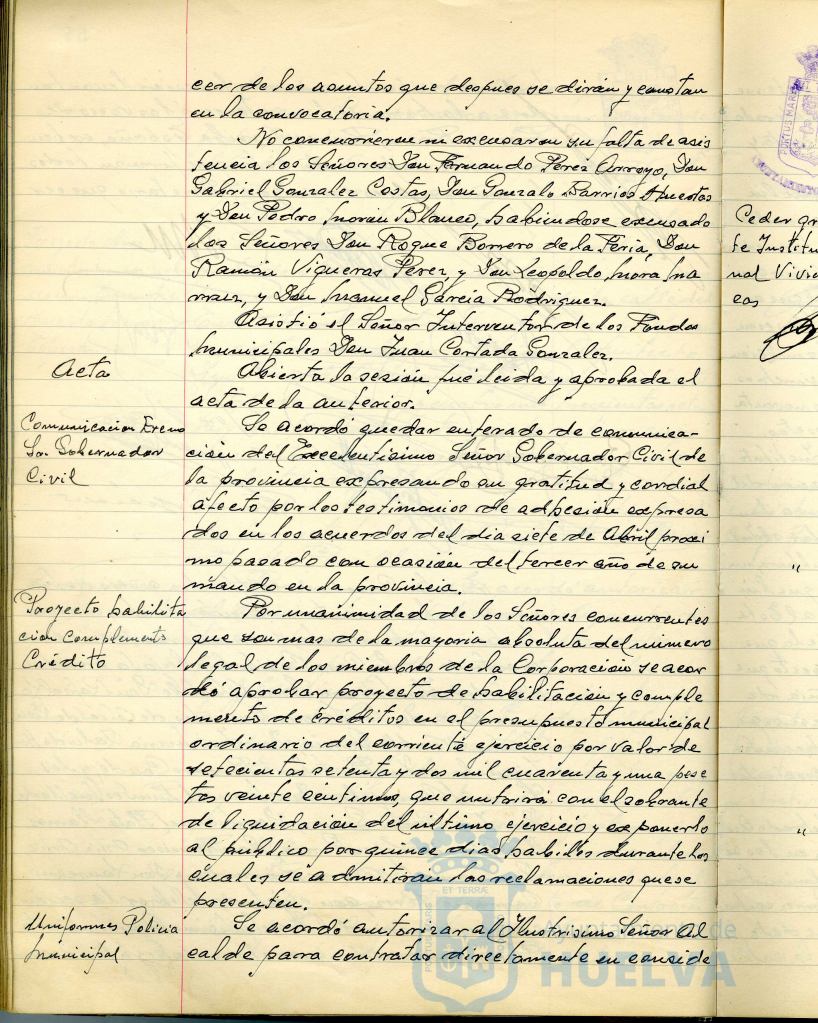 cer de los asuntos que despues se dirán y constan
en la convocatoria.
No concurrieron ni excusaron su falta de asis
tencia los Señores Don Fernando Perez Arroyo, Don
Gabriel Gonzalez Costas, Don Gonzalo Barrios Huestos
y Don Pedro Morán Blanco, habiéndose excusado
los Señores Don Roque Borrero de la Feria, Don
Ramón Vigueras Perez, y Don Leopoldo Mora Ma
rraez, y Don Manuel García Rodriguez.
Asistió el Señor Interventor de los Fondos
Municipales Don Juan Cortada Gonzalez.
Acta
Abierta la sesión fué leida y aprobada el
acta de la anterior.
Comunicacion Excmo
Sr. Gobernador
Civil
Se acordó quedar enterado de comunica-
ción del Excelentísimo Señor Gobernador Civil de
la provincia expresando su gratitud y cordial
afecto por los testimonios de adhesión expresa
dos en los acuerdos del dia siete de Abril proxi
mo pasado con ocasión del tercer año de su
mando en la provincia.
Proyecto habilita
cion complemento
Crédito
Por unanimidad de los Señores concurrentes
que son mas de la mayoria absoluta del número
legal de los miembros de la Corporación se acor
dó aprobar proyecto de habilitación y comple
mento de créditos en el presupuesto municipal
ordinario del corriente ejercicio por valor de
setecientas setenta y dos mil cuarenta y una pese
tas veinte céntimos, que nutrirá con el sobrante
de liquidación del último ejercicio y exponerlo
al público por quince dias habiles durante los
cuales se admitirán las reclamaciones que se
presenten.
Uniformes Policia
Municipal
Se acordó autorizar al Ilustrisimo Señor Al
calde para contratar directamente en conside
Ceder gr
te Institu
nal Vivie
eas
"
"
PORTUS MARIS
PORTUS MARIS
ET TERRÆ
de
HUELVA